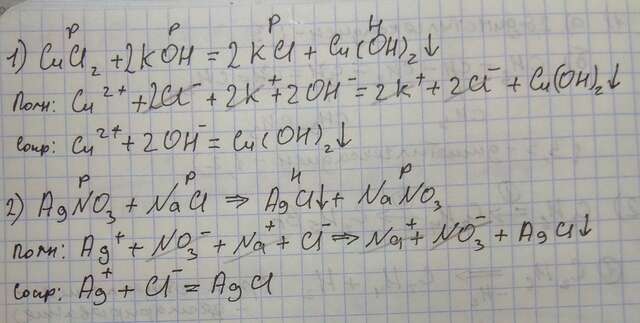 Р Р Р Н
1) CuCl₂ + 2KOH = 2KCl + Cu(OH)₂↓
Полн: Cu²⁺ + 2Cl⁻ + 2K⁺ + 2OH⁻ = 2K⁺ + 2Cl⁻ + Cu(OH)₂↓
Сокр: Cu²⁺ + 2OH⁻ = Cu(OH)₂↓
Р Р Н Р
2) AgNO₃ + NaCl ⇒ AgCl↓ + NaNO₃
Полн: Ag⁺ + NO₃⁻ + Na⁺ + Cl⁻ ⇒ Na⁺ + NO₃⁻ + AgCl↓
Сокр: Ag⁺ + Cl⁻ = AgCl